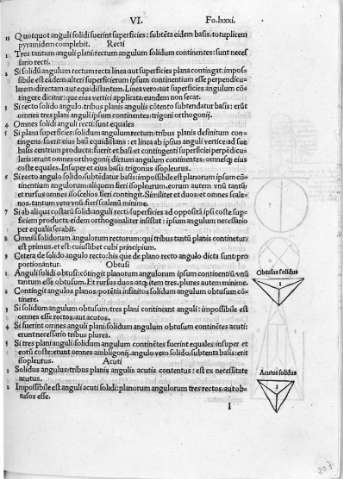 VI. Fo.lxxxi.
10 Quot quot anguli solidi fuerint superficies: subtēta eidem basis: totuplicem
pyramidem complebit. Recti
1 Tres tantum anguli plani rectum angulum solidum continentes: sunt neces
sario recti.
2 Si solidū angulum rectum recta linea aut superficies plana contingat: impos
sibile est eidem alteri superficierum ipsum continentium esse perpendicu-
larem: directam aut equidistantem. Linea vero aut superficies angulum cō
tingere dicitur: que eius vertici applicata: eundem non secat.
3 Si recto solido angulo: tribus planis angulis cōtento subtendatur basis: erūt
omnes tres plani anguli ipsum continentes: trigoni orthogonij.
4 Omnes solidi anguli recti: sunt equales
5 Si plana superficies: solidum angulum rectum: tribus planis definitum con-
tingens: fuerit eius basi equidistans: et linea ab ipsius anguli vertice ad sue
basis centrum producta: fuerit et basi et contingenti superficiei perpēdicu-
laris: erunt omnes orthogonij dictum angulum continentes: omnesq eius
coste equales. Insuper et eius basis trigonus isopleurus.
6 Si recto angulo solido: subtēdatur basis: impossibile est planorum ipsum cō
tinentium angulorum: aliquem fieri isopleurum. eorum autem vnū tantū:
et rursus omnes isosceles fieri contingit. Similiter et duos et omnes scale-
nos. tantum vero vnū fieri scalenū minime.
7 Si ab aliquo costarū solidi anguli recti superficies ad oppositā ipsi coste sup-
ficiem producta: eidem orthogonaliter insistat: ipsum angulum maxime
per equalia secabit.
8 Omnis solidorum angulorum rectorum: qui tribus tantū planis continetur:
est primus. et est cuiuslibet cubi principium.
9 Cetera de solido angulo recto: his que de plano recto angulo dicta sunt: pro
portionantur. Obtusi
1 Anguli solidi obtusi: cōtingit planorum angulorum ipsum continentiū vnū
tantum esse obtusum. Et rursus duos atq item tres. plures autem minime.
2 Contingit angulos planos positiōe infinitos solidum angulum obtusum cō-
tinere.
3 Si solidum angulum obtusum: tres plani contineant anguli: impossibile est
omnes esse rectos: aut acutos.
4 Si fuerint omnes anguli plani solidum angulum obtusum continētes acuti:
erunt necessario tribus plures.
5 Si tres plani anguli solidum angulum continētes fuerint equales: insuper et
eorū coste: erunt omnes ambligonij. angulo vero solido subtenta basis: erit
isopleurus. Acuti
1 Solidus angulus: tribus planis angulis acutis contentus: est ex necessitate
acutus.
2 Impossibile est anguli acuti solidi: planorum angulorum tres rectos: aut ob-
tusos esse.
Obtusus solidus
1
Acutus solidus
1
l